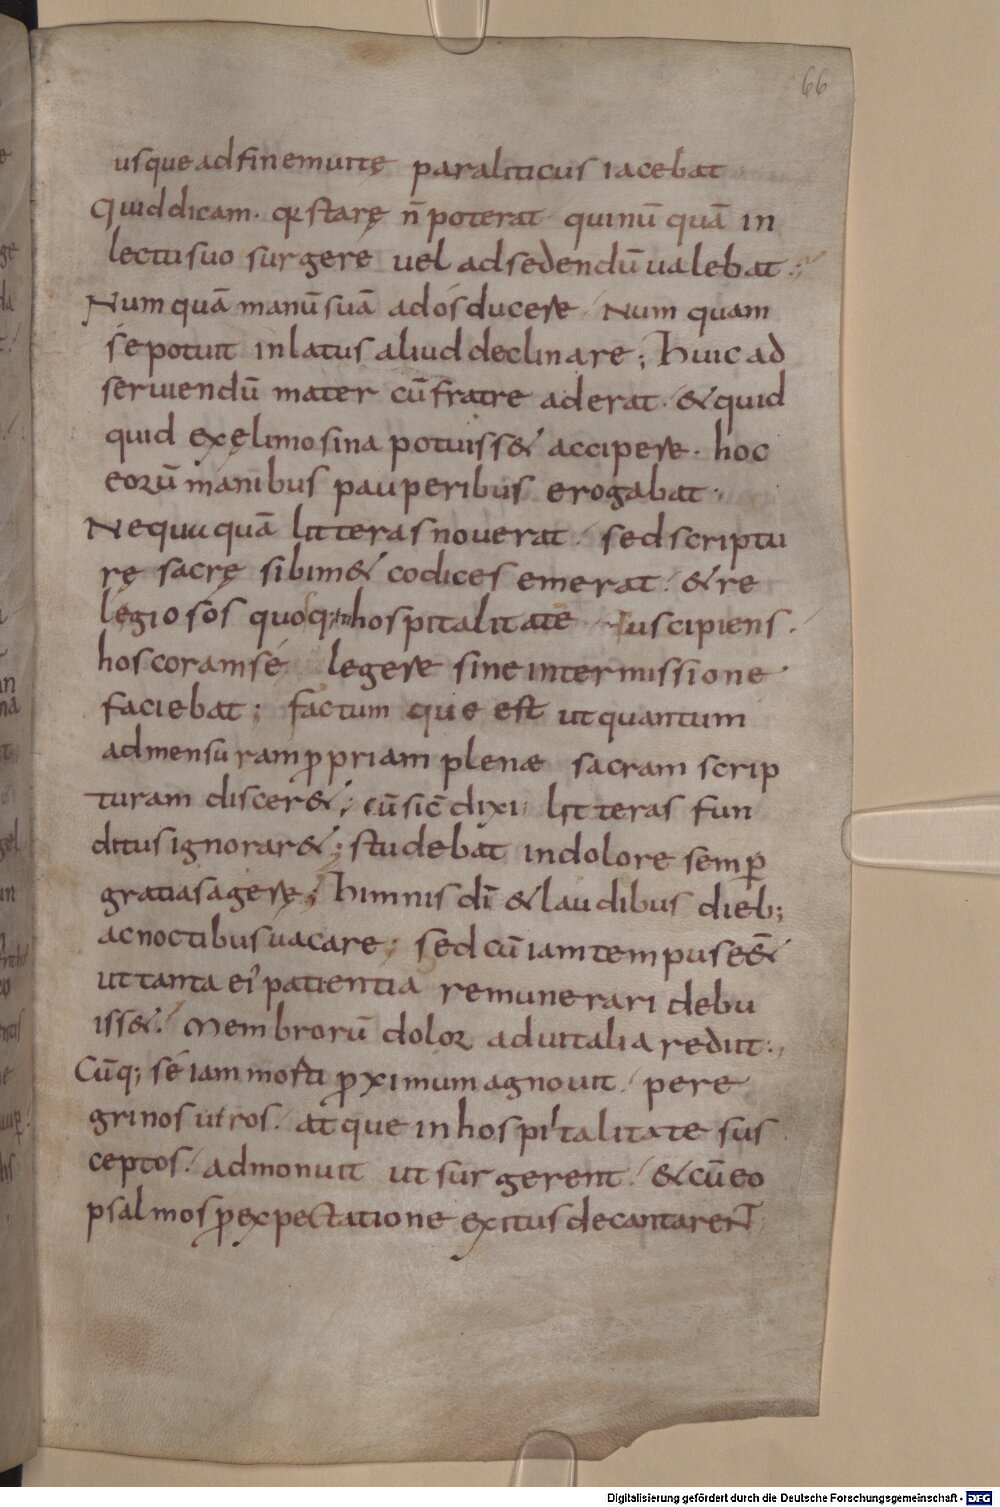 66
usque ad finem uitę paraliticus iacebat
Quid dicam. qr starę n̄ poterat quinū quā in
lectu suo surgere uel ad sedendū ualebat.
Num quā manū suā ad os ducere. Num quam
se potuit in latus aliud declinare; Huic ad
seruiendū mater cū fratre aderat. & quid
quid ex ęlimosina potuiss& accipere. hoc
eorū manibus pauperibus erogabat.
Nequaquā litteras nouerat. sed scriptu
rę sacrę sibim& codices emerat. & re
legiosos quoq; hospitalitatē suscipiens.
hos coram se legere sine intermissione
faciebat; factum que est ut quantum
ad mensuram ꝓpriam plenæ sacram scrip
turam discer&; cū sic̄ dixi litteras fun
ditus ignorar&; studebat in dolore semꝑ
gratias agere; Himnis dī & laudibus dieb;
ac noctibus uacare; sed cū iam tempus eē&
ut tanta ei patientia remunerari debu
iss&. Membrorū dolor ad uitalia rediit.
Cūq; se iam morti ꝓximum agnouit. pere
grinos uiros. atque in hospitalitate sus
ceptos. admonuit ut surgerent. & cū eo
psalmos ꝓ expectatione exitus decantarent
Digitalisierung gefördert durch die Deutsche Forschungsgemeinschaft - DFG